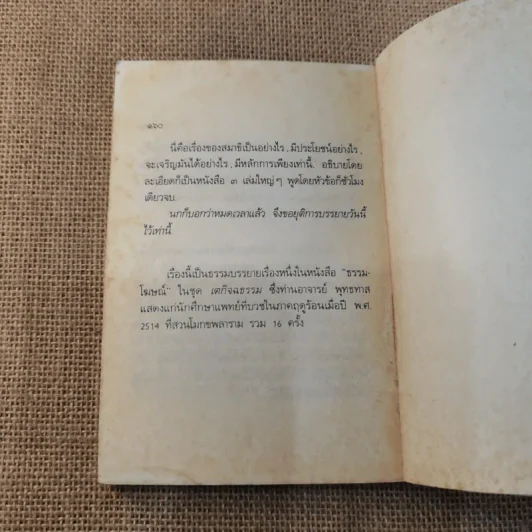 ๑๖๐
นี่คือเรื่องของสมาธิเป็นอย่างไร, มีประโยชน์อย่างไร,
จะเจริญมันได้อย่างไร, มีหลักการเพียงเท่านี้. อธิบายโดย
ละเอียดก็เป็นหนังสือ ๓ เล่มใหญ่ๆ พูดโดยหัวข้อก็ชั่วโมง
เดียวจบ.
นกก็บอกว่าหมดเวลาแล้ว จึงขอยุติการบรรยายวันนี้
ไว้เท่านี้.
เรื่องนี้เป็นธรรมบรรยายเรื่องหนึ่งในหนังสือ "ธรรม-
โฆษณ์" ในชุด เตกิจฉธรรม ซึ่งท่านอาจารย์ พุทธทาส
แสดงแก่นักศึกษาแพทย์ที่บวชในภาคฤดูร้อนเมื่อปี พ.ศ.
2514 ที่สวนโมกขพลาราม รวม 16 ครั้ง